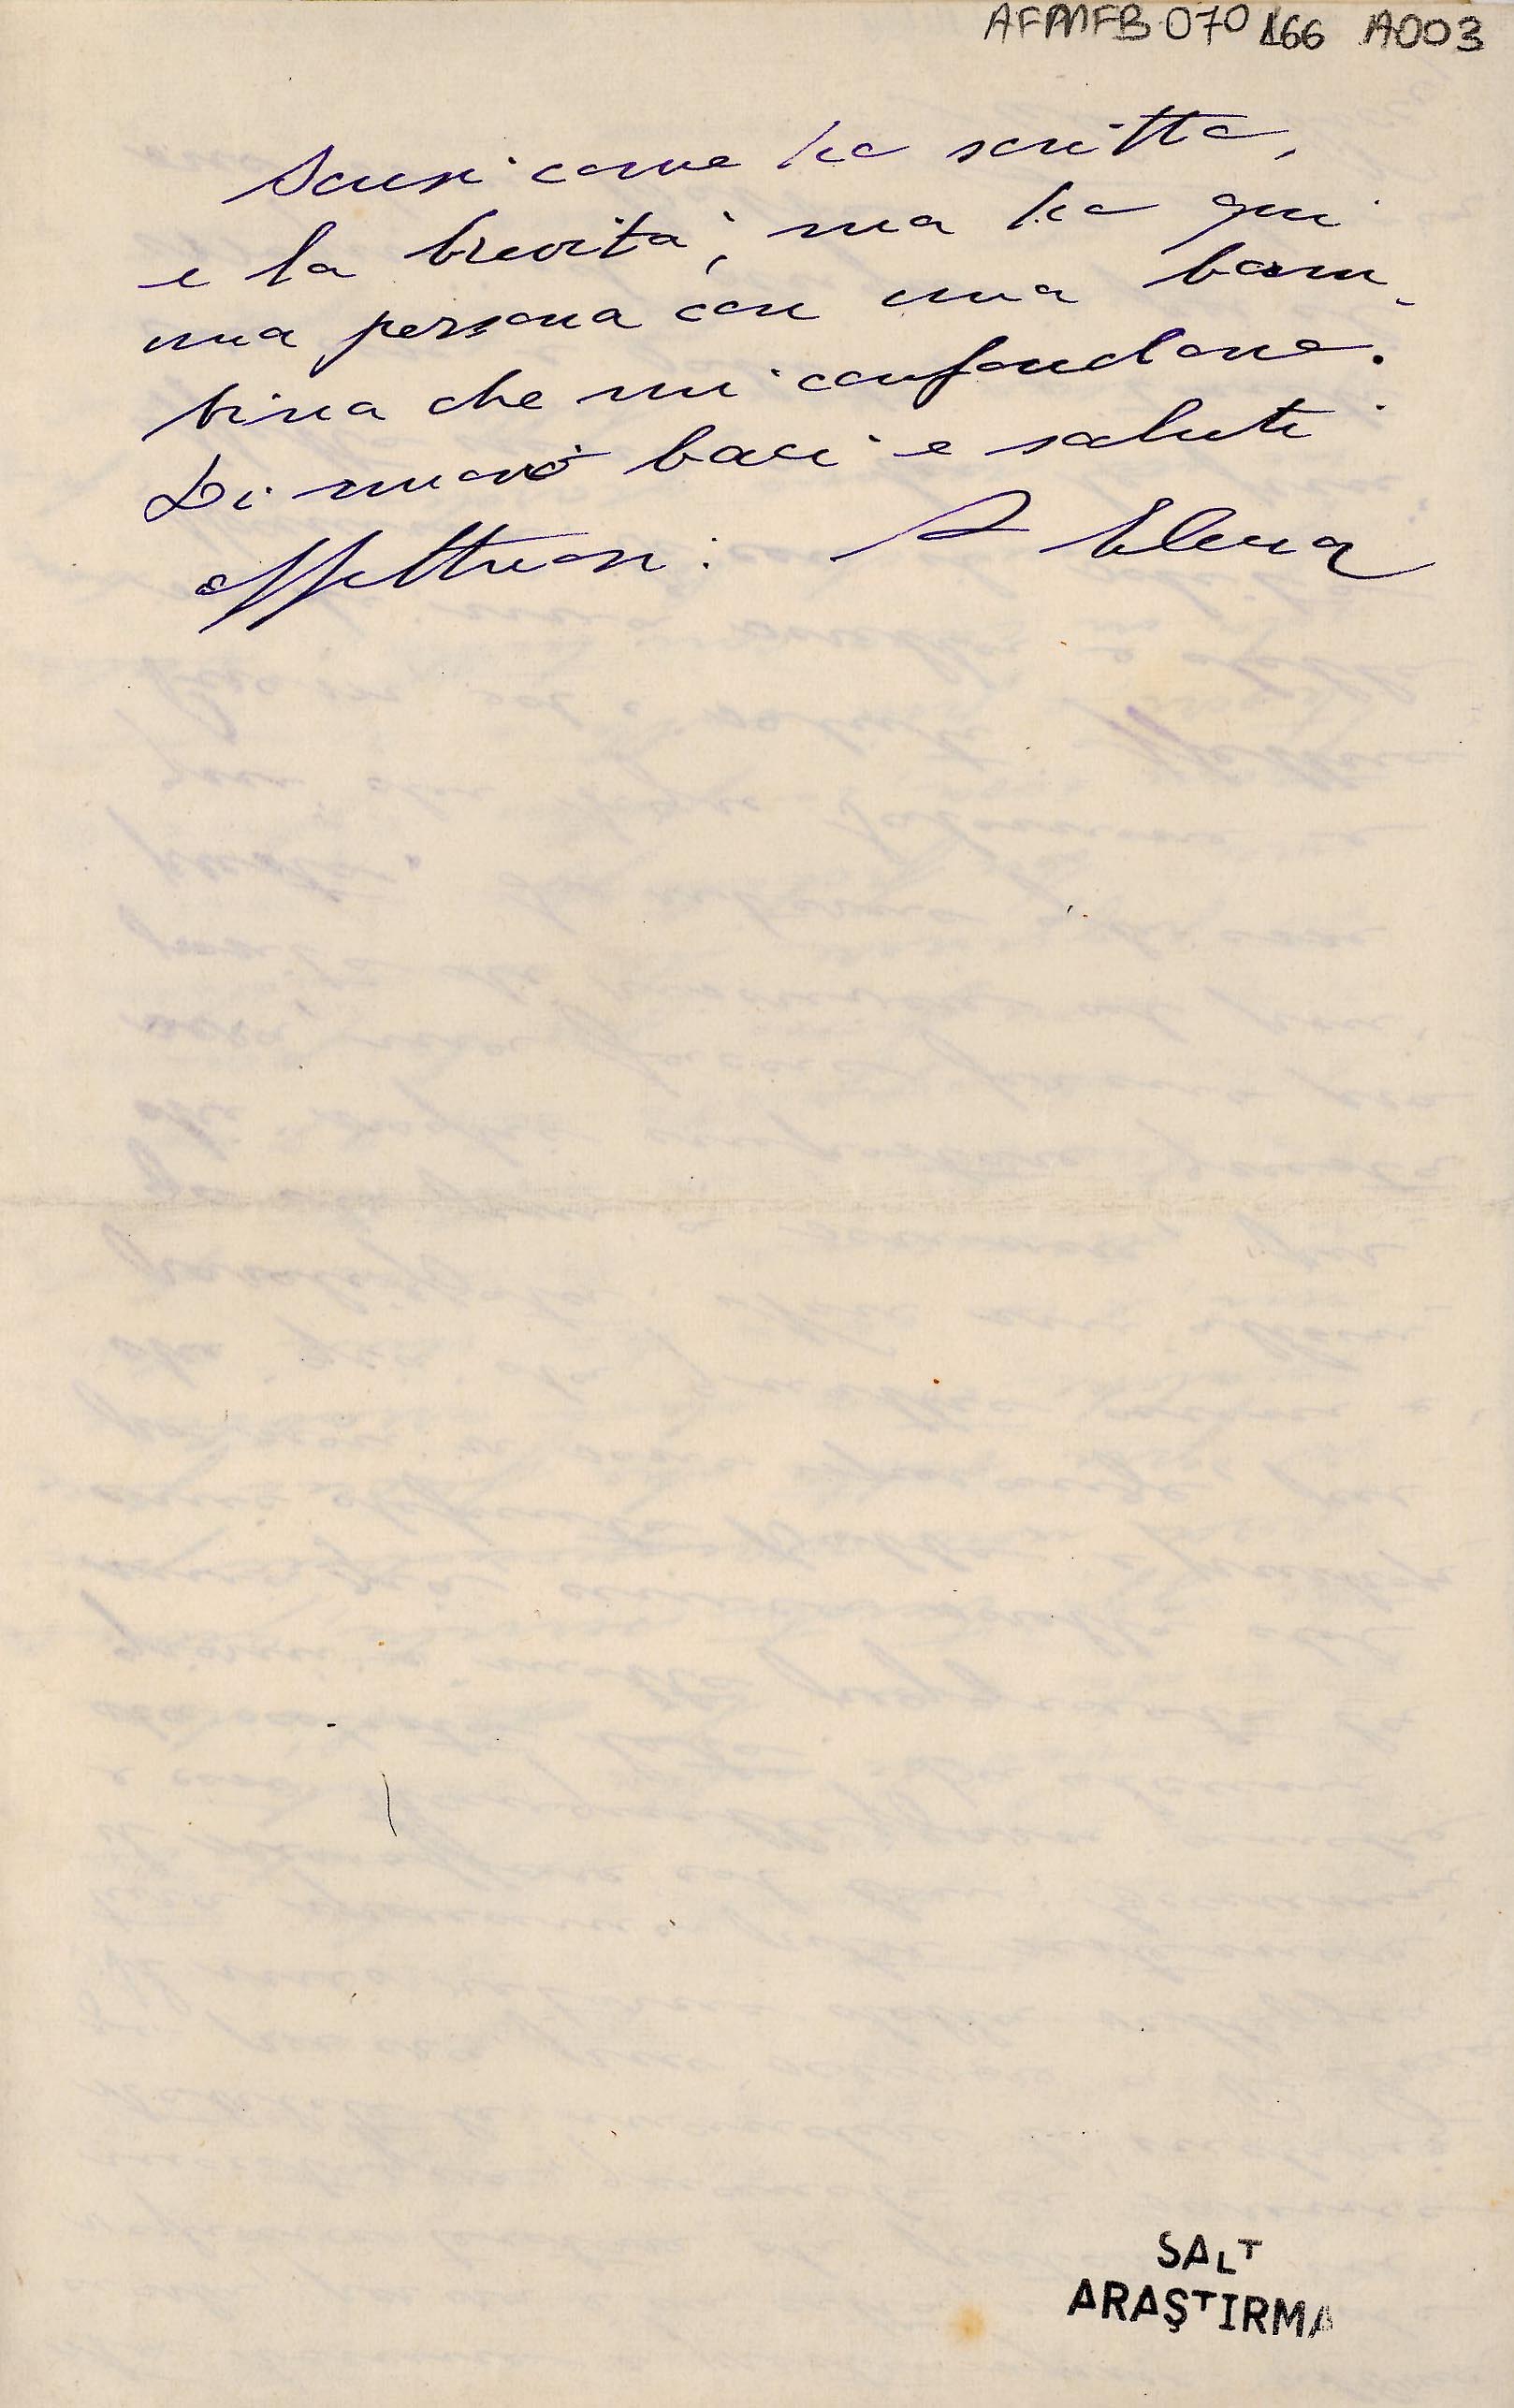 AFMFB 070 166 A003
Scusi come ho scritto,
e la brevità, ma ho qui
una persona con una bam-
bina che mi confondono.
Di nuovo baci e saluti
affettuosi: Elena
SALT
ARAŞTIRMA